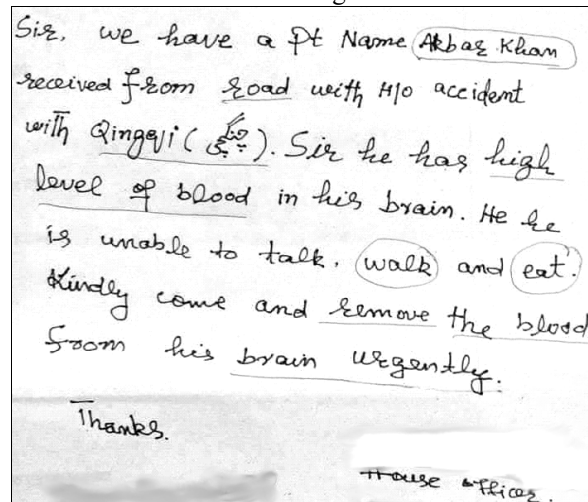 Sir, we have a Pt Name Akbar Khan
received from road with H/o accident
with Qingqi ( چنگچی ). Sir he has high
level of blood in his brain. He he
is unable to talk, walk and eat.
Kindly come and remove the blood
from his brain urgently.
Thanks.
House officer.